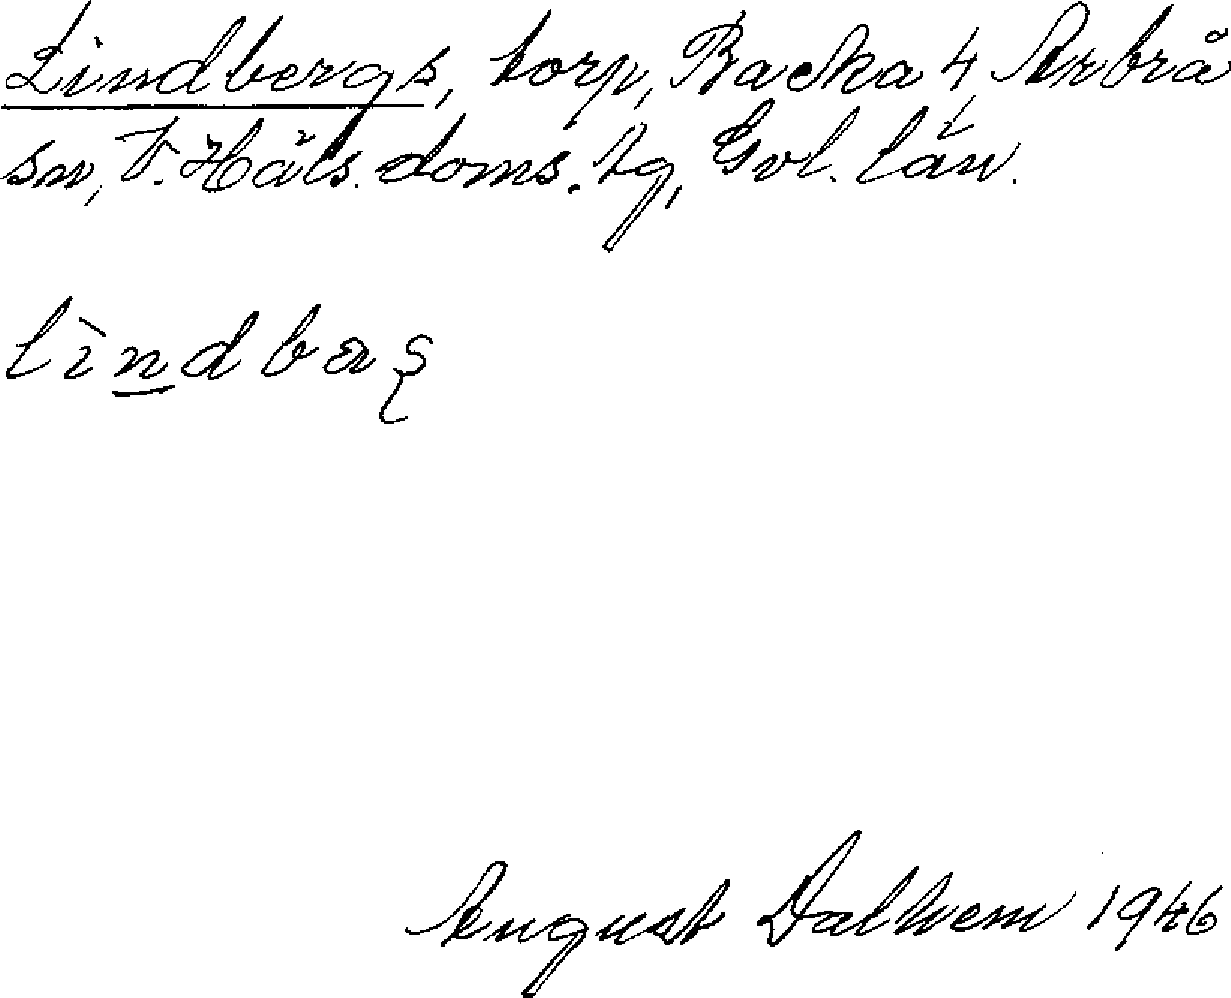 Lindbergs, torp, Backa 4, Arbrå
sn, V. Häls. doms. tg, Gvl. län.
lìndbæş
August Dalhem 1946